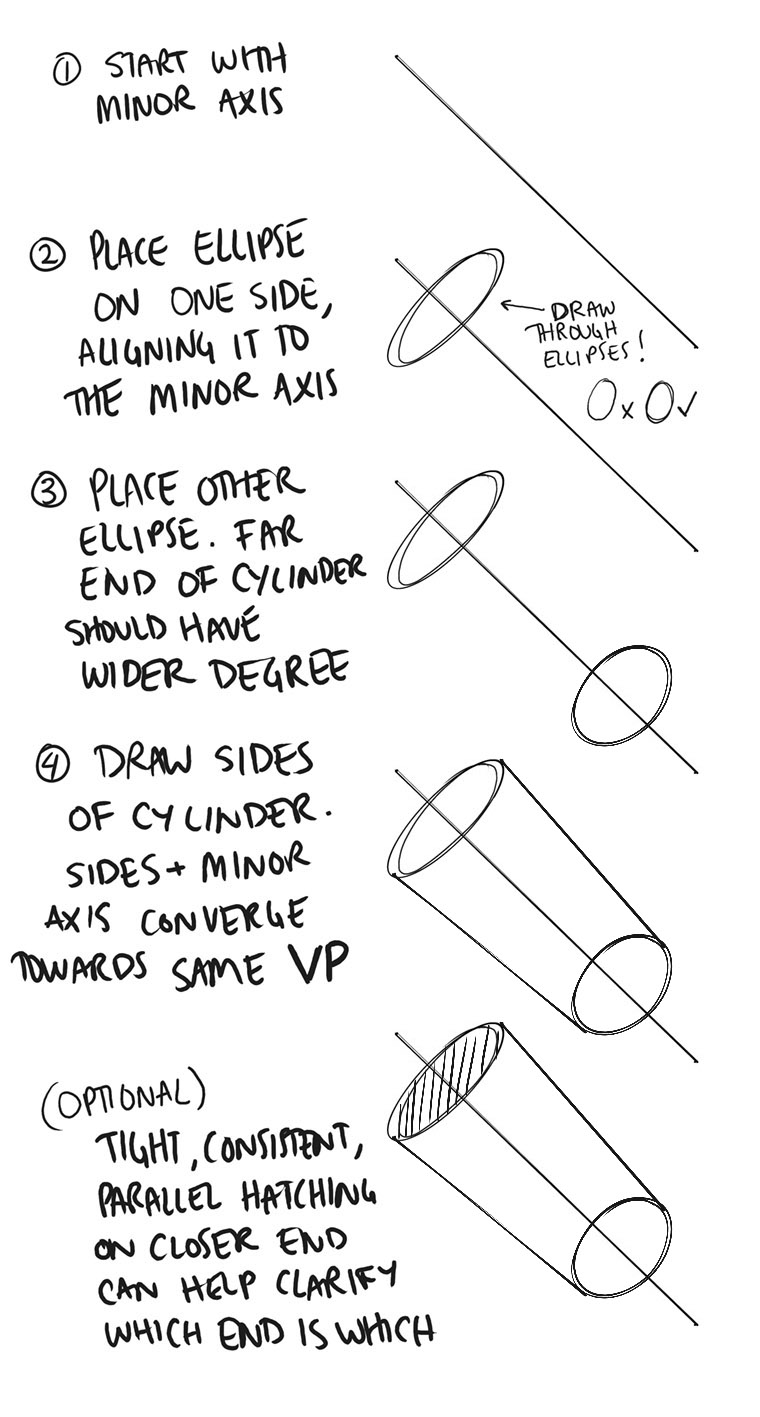 ① START WITH
MINOR AXIS
② PLACE ELLIPSE
ON ONE SIDE,
ALIGNING IT TO
THE MINOR AXIS
DRAW
THROUGH
ELLIPSES!
③ PLACE OTHER
ELLIPSE. FAR
END OF CYLINDER
SHOULD HAVE
WIDER DEGREE
④ DRAW SIDES
OF CYLINDER.
SIDES + MINOR
AXIS CONVERGE
TOWARDS SAME VP
(OPTIONAL)
TIGHT, CONSISTENT,
PARALLEL HATCHING
ON CLOSER END
CAN HELP CLARIFY
WHICH END IS WHICH